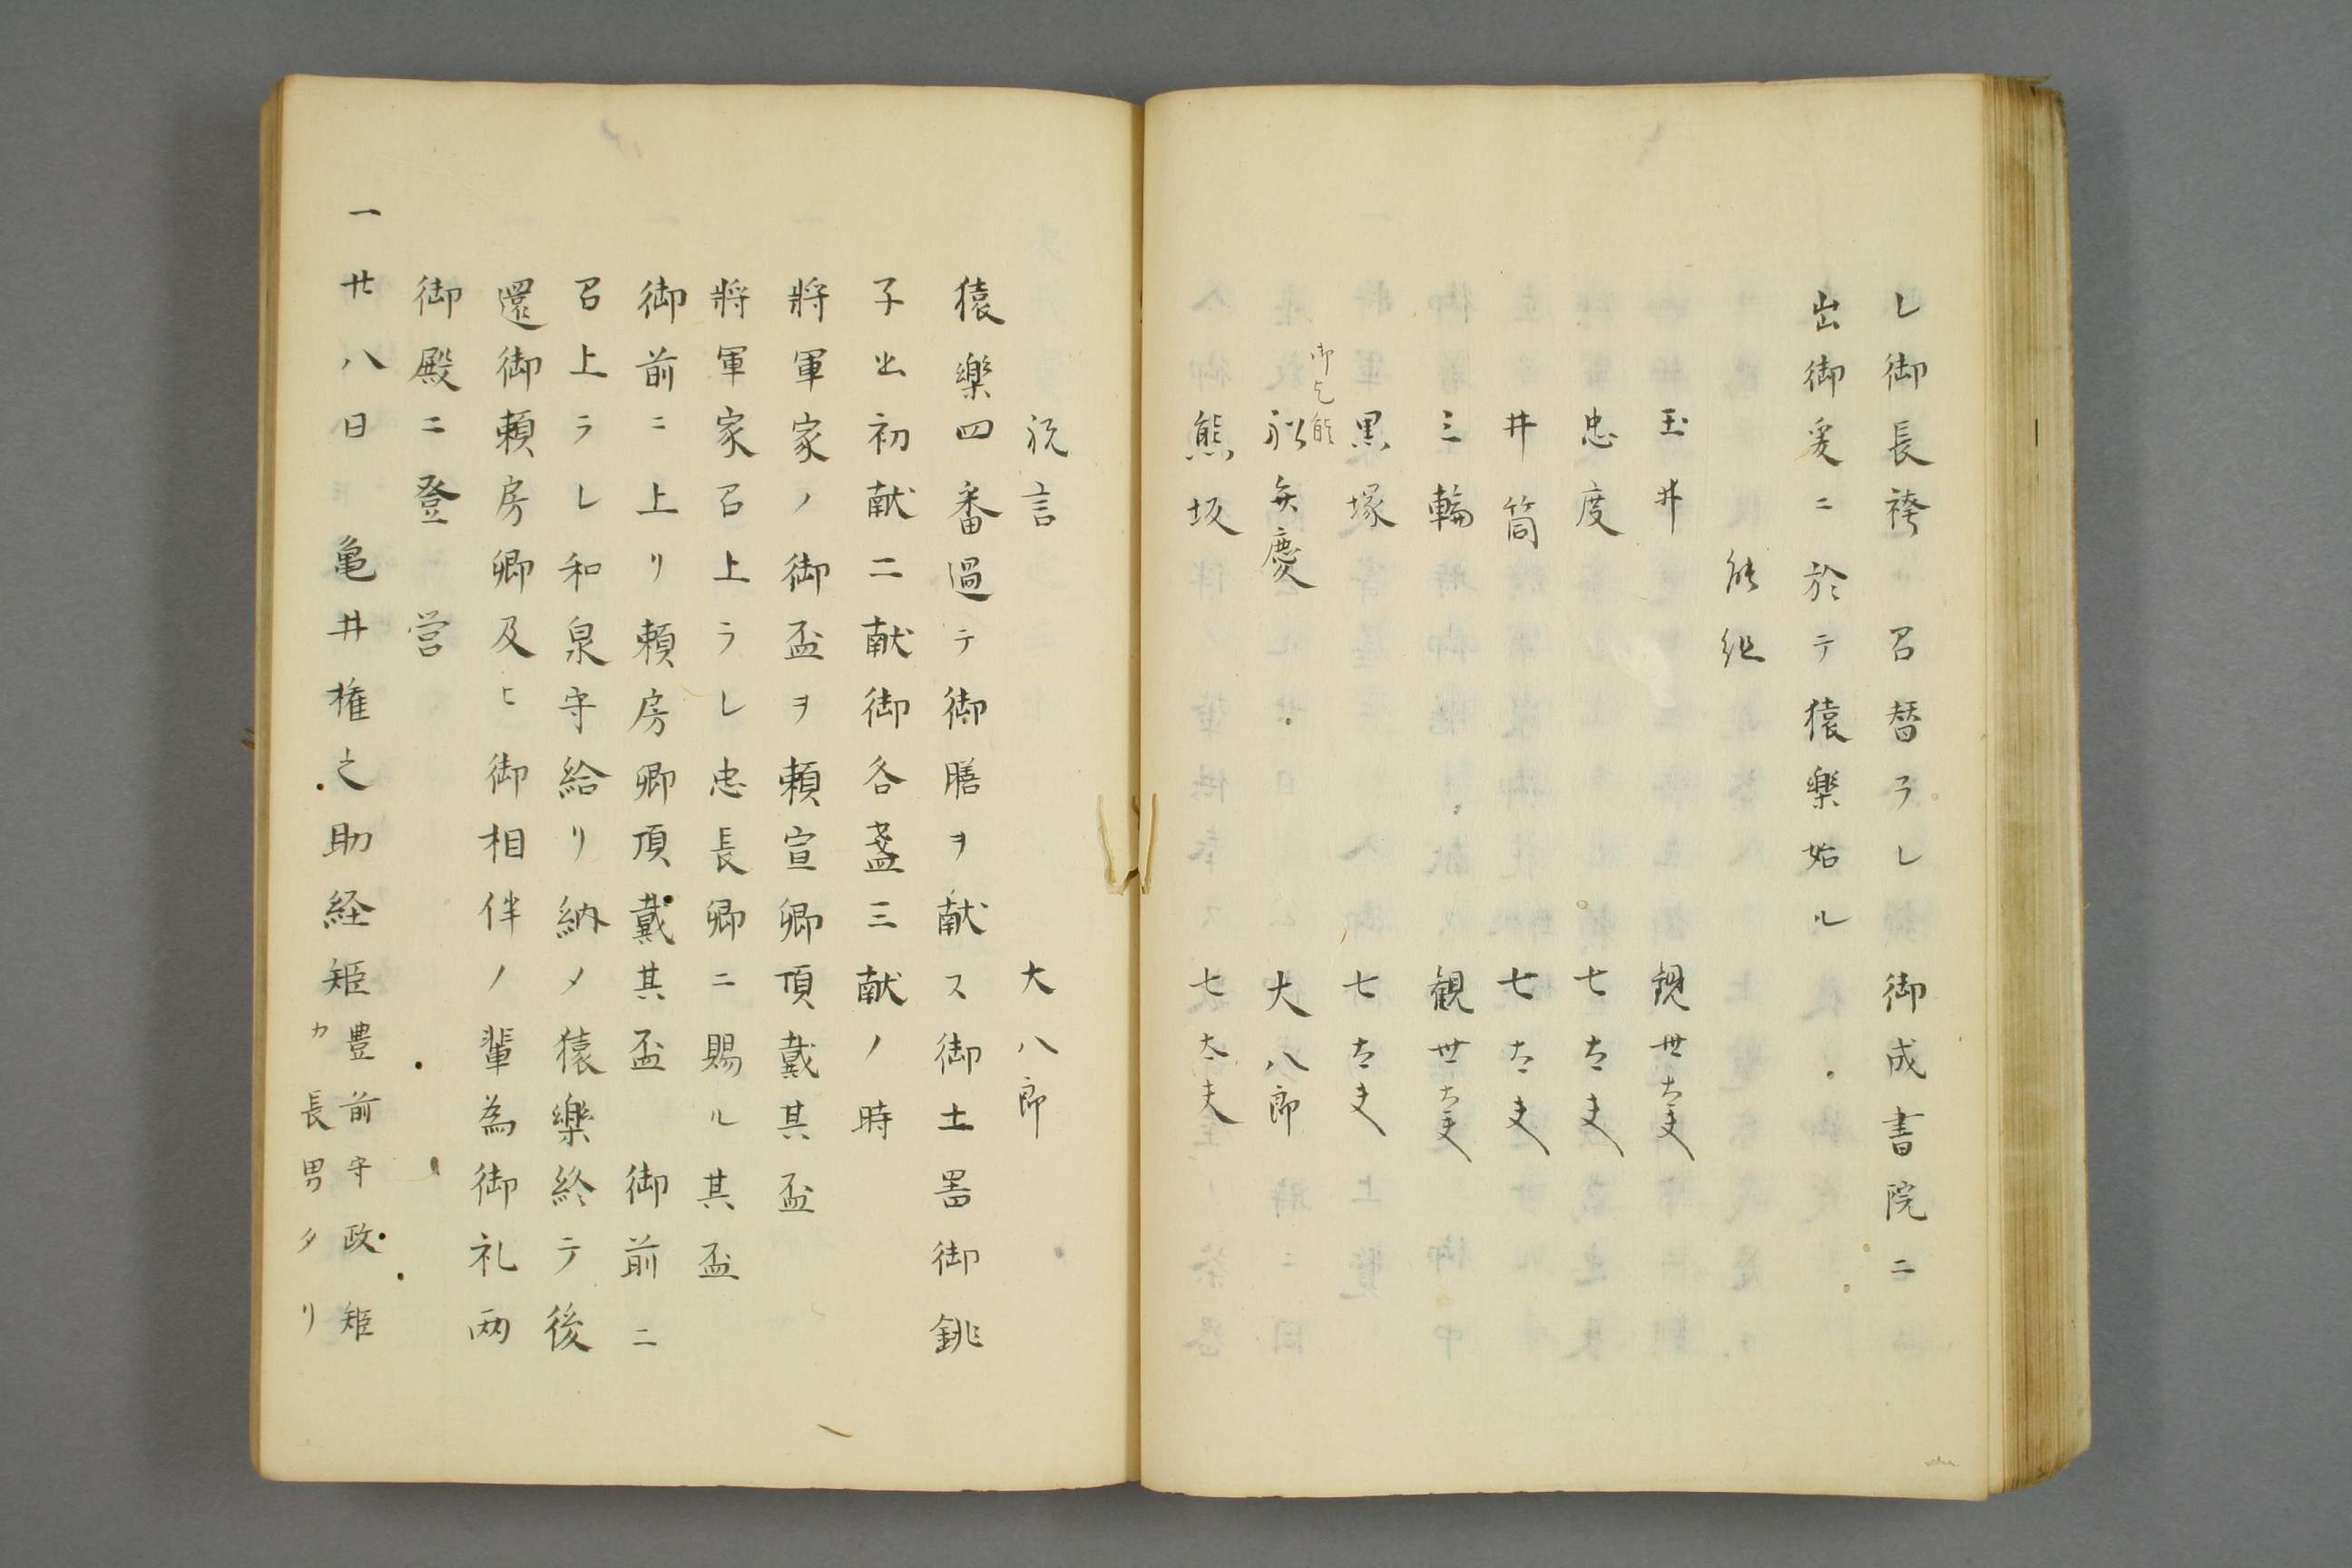 シ御長袴ヲ召替ラレ　御成書院ニ
出御爰ニ於テ猿樂始ル
能組
玉井　観世太夫
忠度　七太夫
井筒　七太夫
三輪　観世太夫
黒塚　七太夫
御乞能
船弁慶　大八郎
熊坂　七太夫
祝言　大八郎
猿樂四番過テ御膳ヲ献ス御土器御銚
子出初献二献御各盞三献ノ時
將軍家ノ御盃ヲ頼宣卿頂戴其盃
將軍家召上ラレ忠長卿ニ賜ル其盃
御前ニ上リ頼房卿頂戴其盃　御前ニ
召上ラレ和泉守給リ納メ猿樂終テ後
還御頼房卿及ヒ御相伴ノ輩為御礼両
御殿ニ登　営
一廿八日　亀井権之助経矩豊前守政矩
カ長男タリ